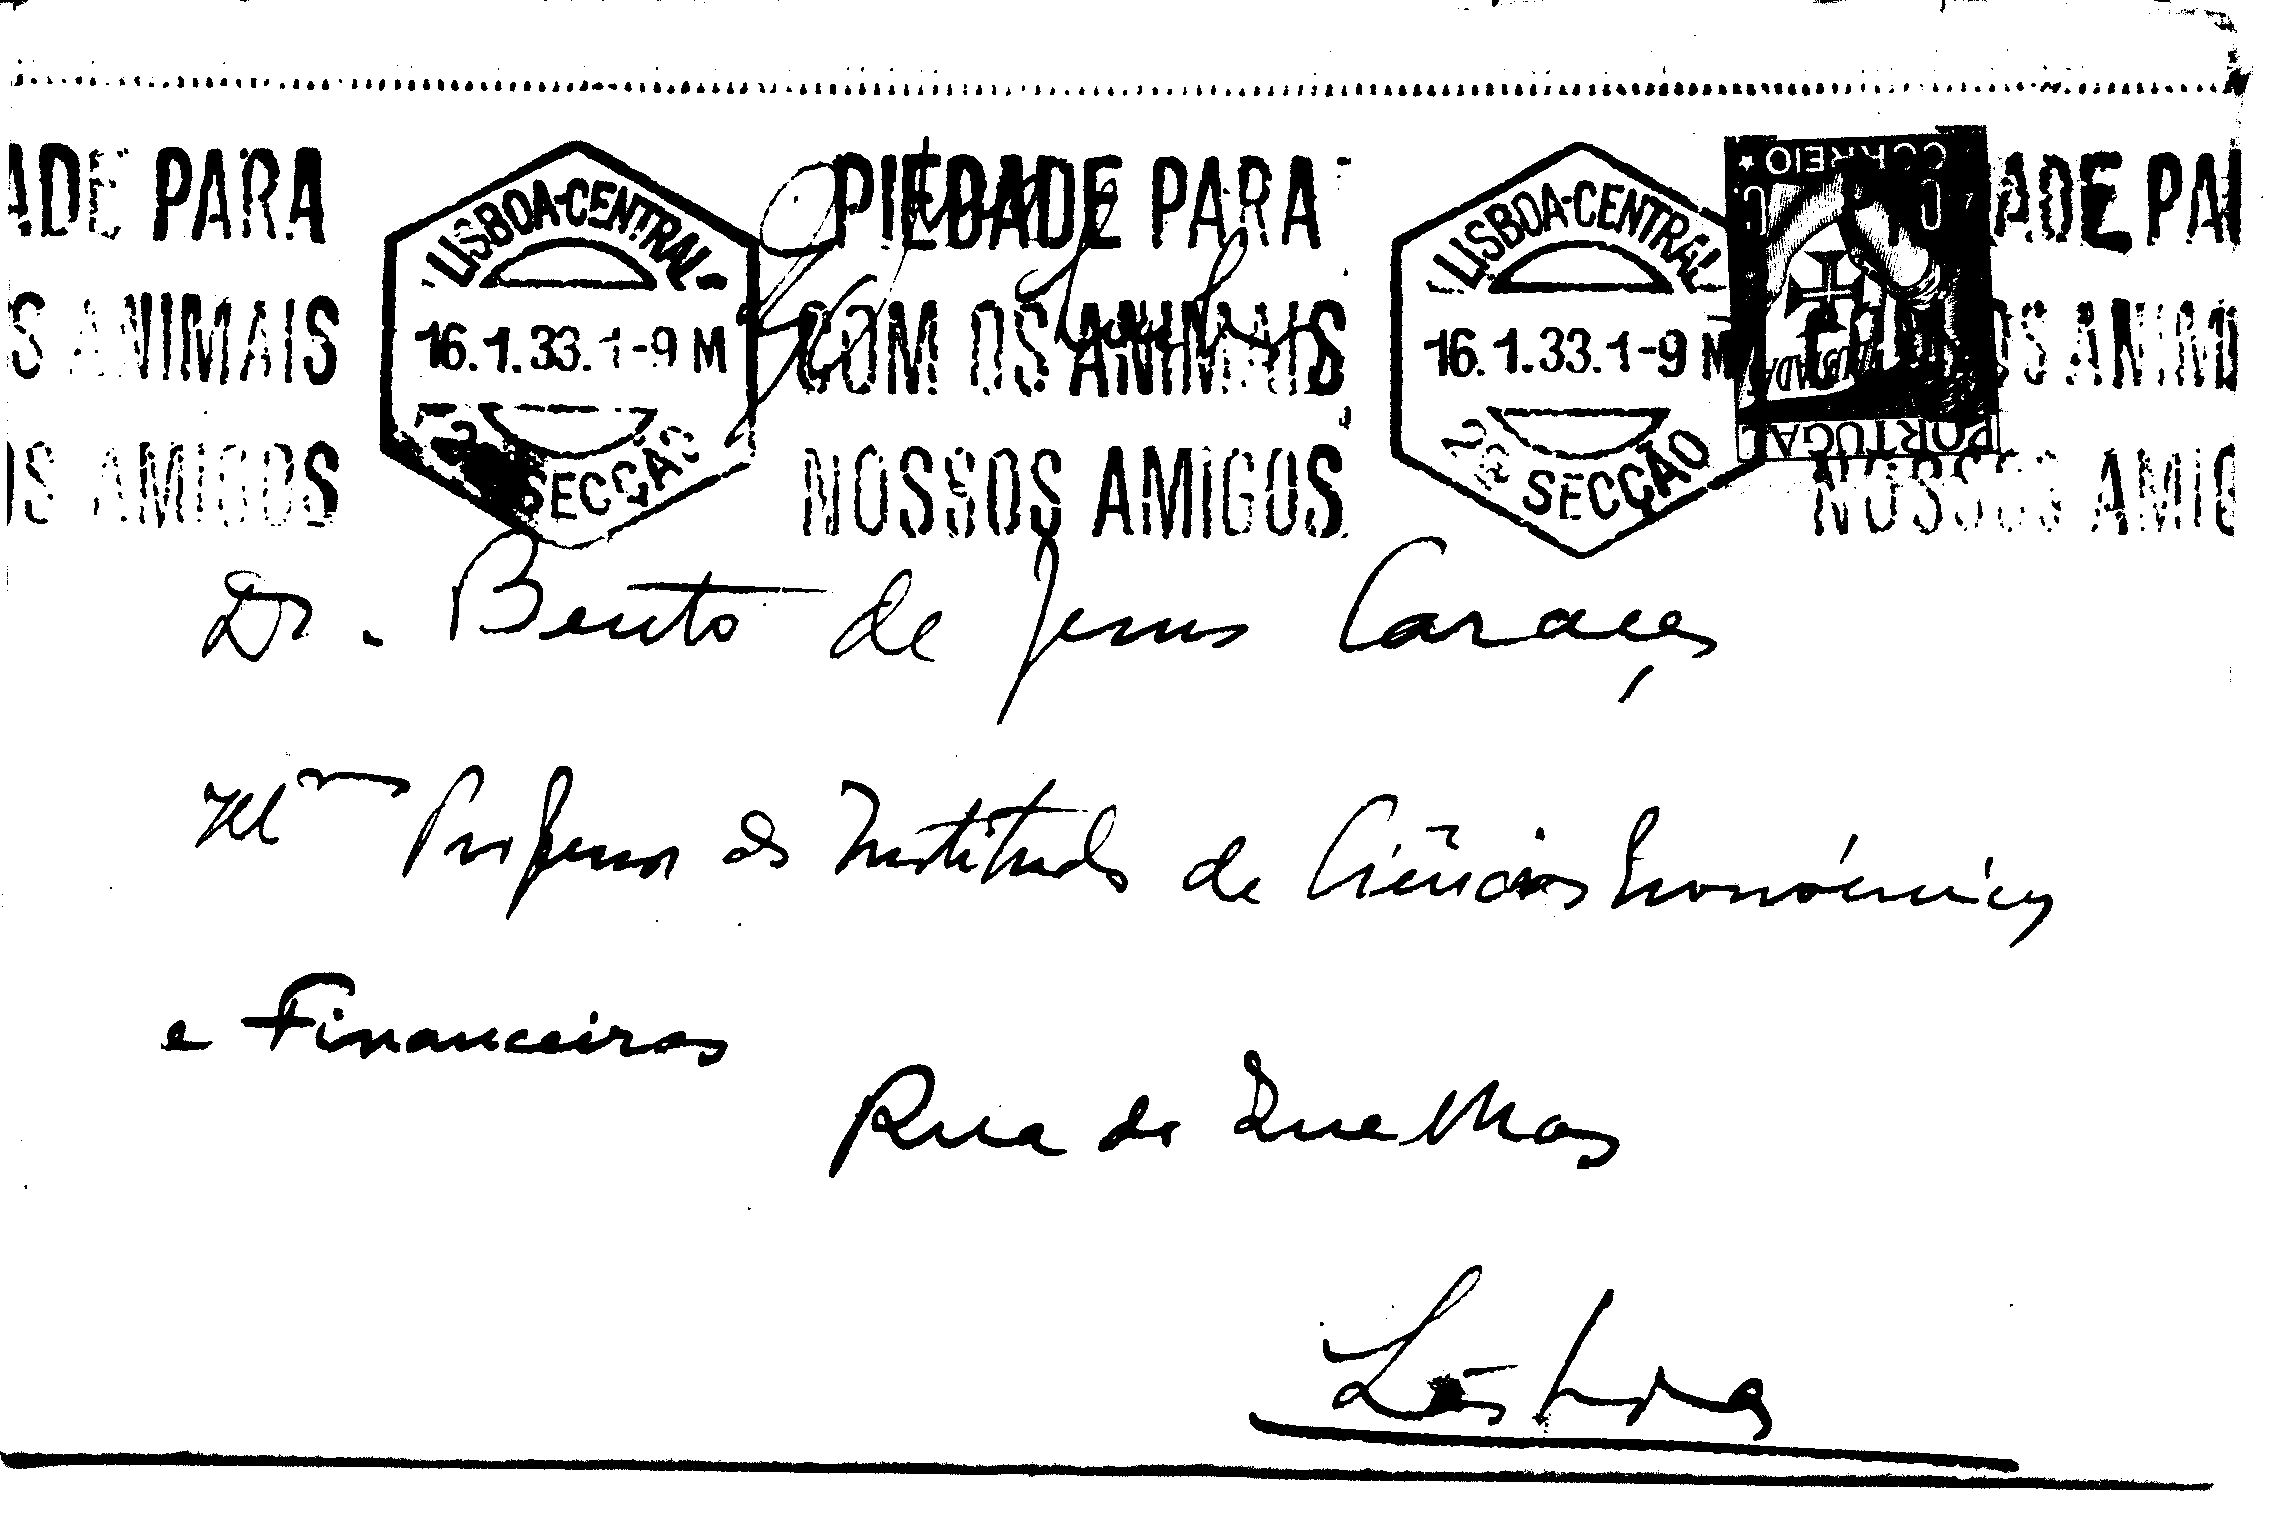 ADE PARA PIEDADE PARA ADE PAI
S ANIMAIS COM OS ANIMAIS COM OS ANIM
OS AMIGOS NOSSOS AMIGOS NOSSOS AMIG
LISBOA-CENTRAL
16.1.33.1-9 M
2ª SECÇÃO
LISBOA-CENTRAL
16.1.33.1-9 M
2ª SECÇÃO
CORREIO
PORTUGAL
Dr. Bento de Jesus Caraça
Ilm Professor do Instituto de Ciências Económicas
e Financeiras
Rua do Quelhas
Lisboa